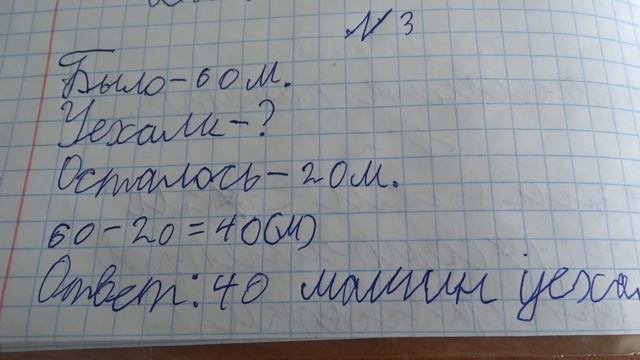 № 3
Было - 60 м.
Уехали - ?
Осталось - 20 м.
60 - 20 = 40 (м)
Ответ: 40 машин уеха